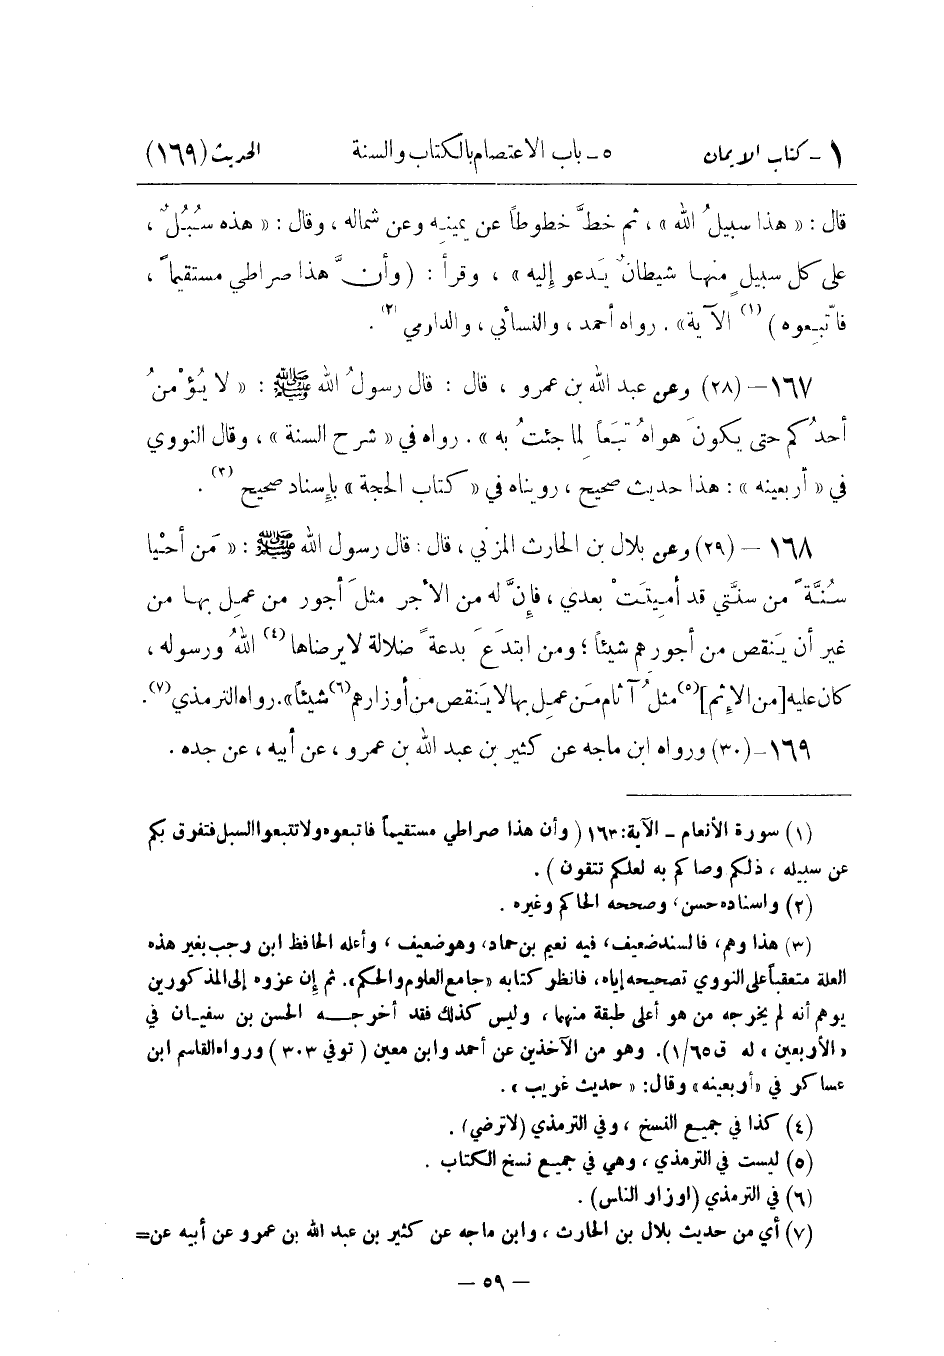 ١ - كتاب الايمان ٥ - باب الاعتصام بالكتاب والسنة الحديث (١٦٩)
قال : « هذا سبيلُ الله » ، ثم خطَّ خطوطاً عن يمينِه وعن شماله ، وقال : « هذه سُبُلٌ ،
على كل سبيلٍ منها شيطانٌ يَدعو إليه » ، وقرأ : ( وأنَّ هذا صراطي مستقيماً ،
فاتّبِعوه ) (١) الآية» . رواه أحمد ، والنسائي ، والدارمي (٢) .
١٦٧ - (٢٨) وعن عبد الله بن عمرو ، قال : قال رسولُ الله ﷺ : « لا يُؤْمنُ
أحدُكم حتى يكونَ هواهُ تبَعاً لِما جئتُ به » . رواه في « شرح السنة » ، وقال النووي
في « أربعينه » : هذا حديث صحيح ، رويناه في « كتاب الحجة » بإسناد صحيح (٣) .
١٦٨ - (٢٩) وعن بلال بن الحارث المزني ، قال : قال رسول الله ﷺ : « مَن أحْيا
سُنَّةً من سنَّتي قد أُميتَتْ بعدي ، فإنَّ له من الأجر مثلَ أجور من عمِل بها من
غير أن يَنقص من أجورهم شيئاً ؛ ومن ابتدَعَ بدعةً ضلالة لا يرضاها (٤) اللهُ ورسوله ،
كان عليه [من الإثم] (٥) مثلُ آثام مَن عمِل بها لا يَنقص من أوزارهم (٦) شيئاً» . رواه الترمذي (٧) .
١٦٩ - (٣٠) ورواه ابن ماجه عن كثير بن عبد الله بن عمرو ، عن أبيه ، عن جده .
(١) سورة الأنعام - الآية : ١٦٣ ( وأن هذا صراطي مستقيماً فاتبعوه ولا تتبعوا السبل فتفرق بكم
عن سبيله ، ذلكم وصاكم به لعلكم تتقون ) .
(٢) واسناده حسن ، وصححه الحاكم وغيره .
(٣) هذا وهم ، فالسند ضعيف ، فيه نعيم بن حماد ، وهو ضعيف ، وأعله الحافظ ابن رجب بغير هذه
العلة متعقباً على النووي تصحيحه إياه ، فانظر كتابه «جامع العلوم والحكم» . ثم إن عزوه إلى المذكورين
يوهم أنه لم يخرجه من هو أعلى طبقة منهما ، وليس كذلك فقد أخرجه الحسن بن سفيان في
« الأربعين » له ق ٦٥/١) . وهو من الآخذين عن أحمد وابن معين ( توفي ٣٠٣ ) ورواه القاسم ابن
عساكر في «أربعينه» وقال : « حديث غريب » .
(٤) كذا في جميع النسخ ، وفي الترمذي (لا ترضي) .
(٥) ليست في الترمذي ، وهي في جميع نسخ الكتاب .
(٦) في الترمذي (اوزار الناس) .
(٧) أي من حديث بلال بن الحارث ، وابن ماجه عن كثير بن عبد الله بن عمرو عن أبيه عن=
- ٥٩ -